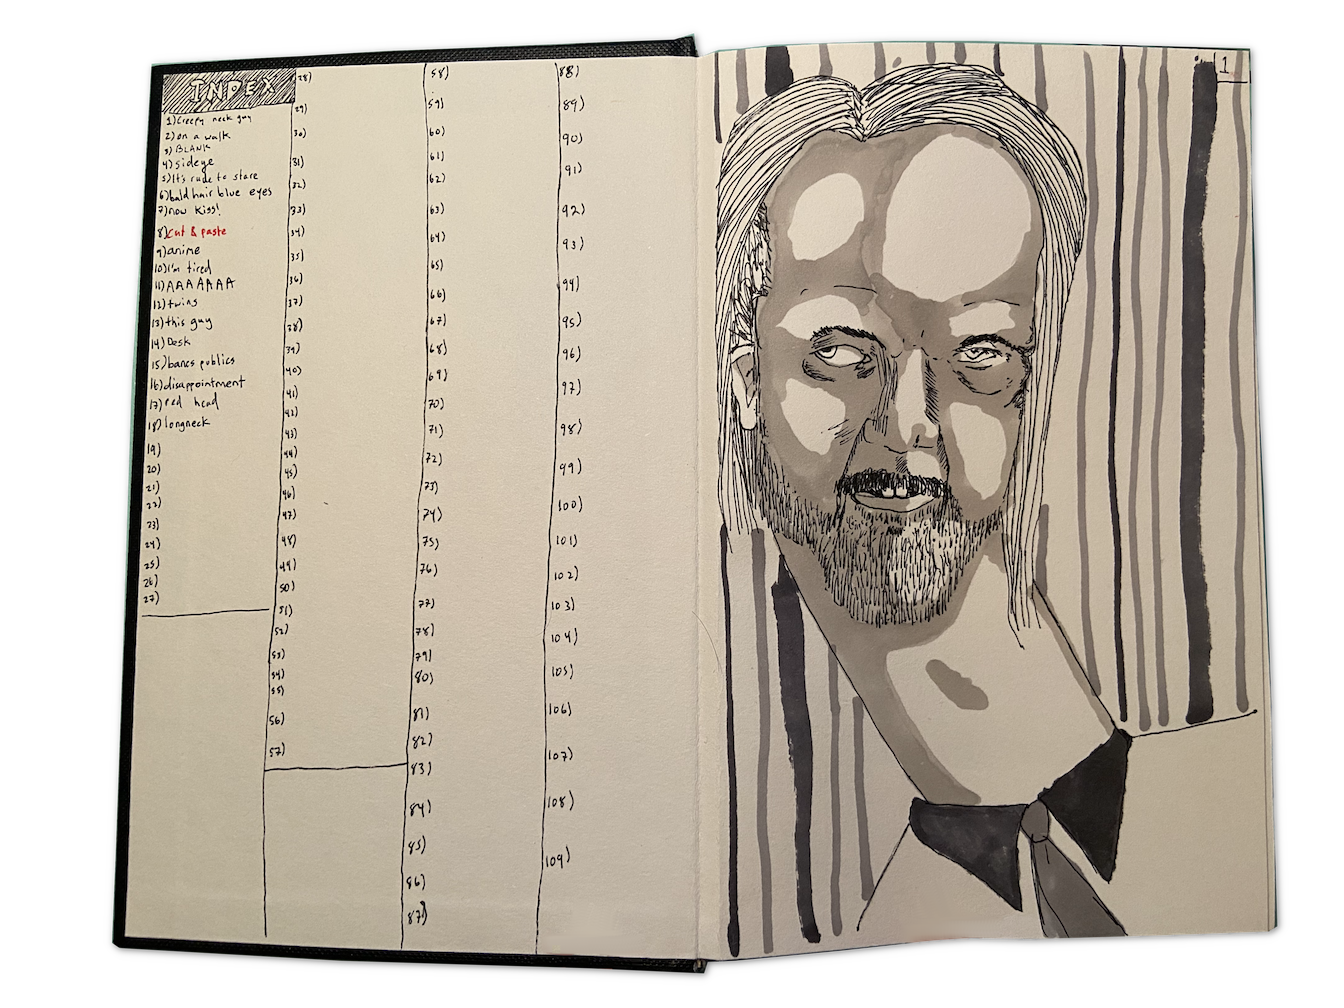 INDEX
1) Creepy neck guy
2) on a walk
3) BLANK
4) sideye
5) It's rude to stare
6) bald hair blue eyes
7) now kiss!
8) cut & paste
9) anime
10) I'm tired
11) AAAAAAA
12) twins
13) this guy
14) Desk
15) bancs publics
16) disappointment
17) red head
18) longneck
19)
20)
21)
22)
23)
24)
25)
26)
27)
28)
29)
30)
31)
32)
33)
34)
35)
36)
37)
38)
39)
40)
41)
42)
43)
44)
45)
46)
47)
48)
49)
50)
51)
52)
53)
54)
55)
56)
57)
58)
59)
60)
61)
62)
63)
64)
65)
66)
67)
68)
69)
70)
71)
72)
73)
74)
75)
76)
77)
78)
79)
80)
81)
82)
83)
84)
85)
86)
87)
88)
89)
90)
91)
92)
93)
94)
95)
96)
97)
98)
99)
100)
101)
102)
103)
104)
105)
106)
107)
108)
109)
1